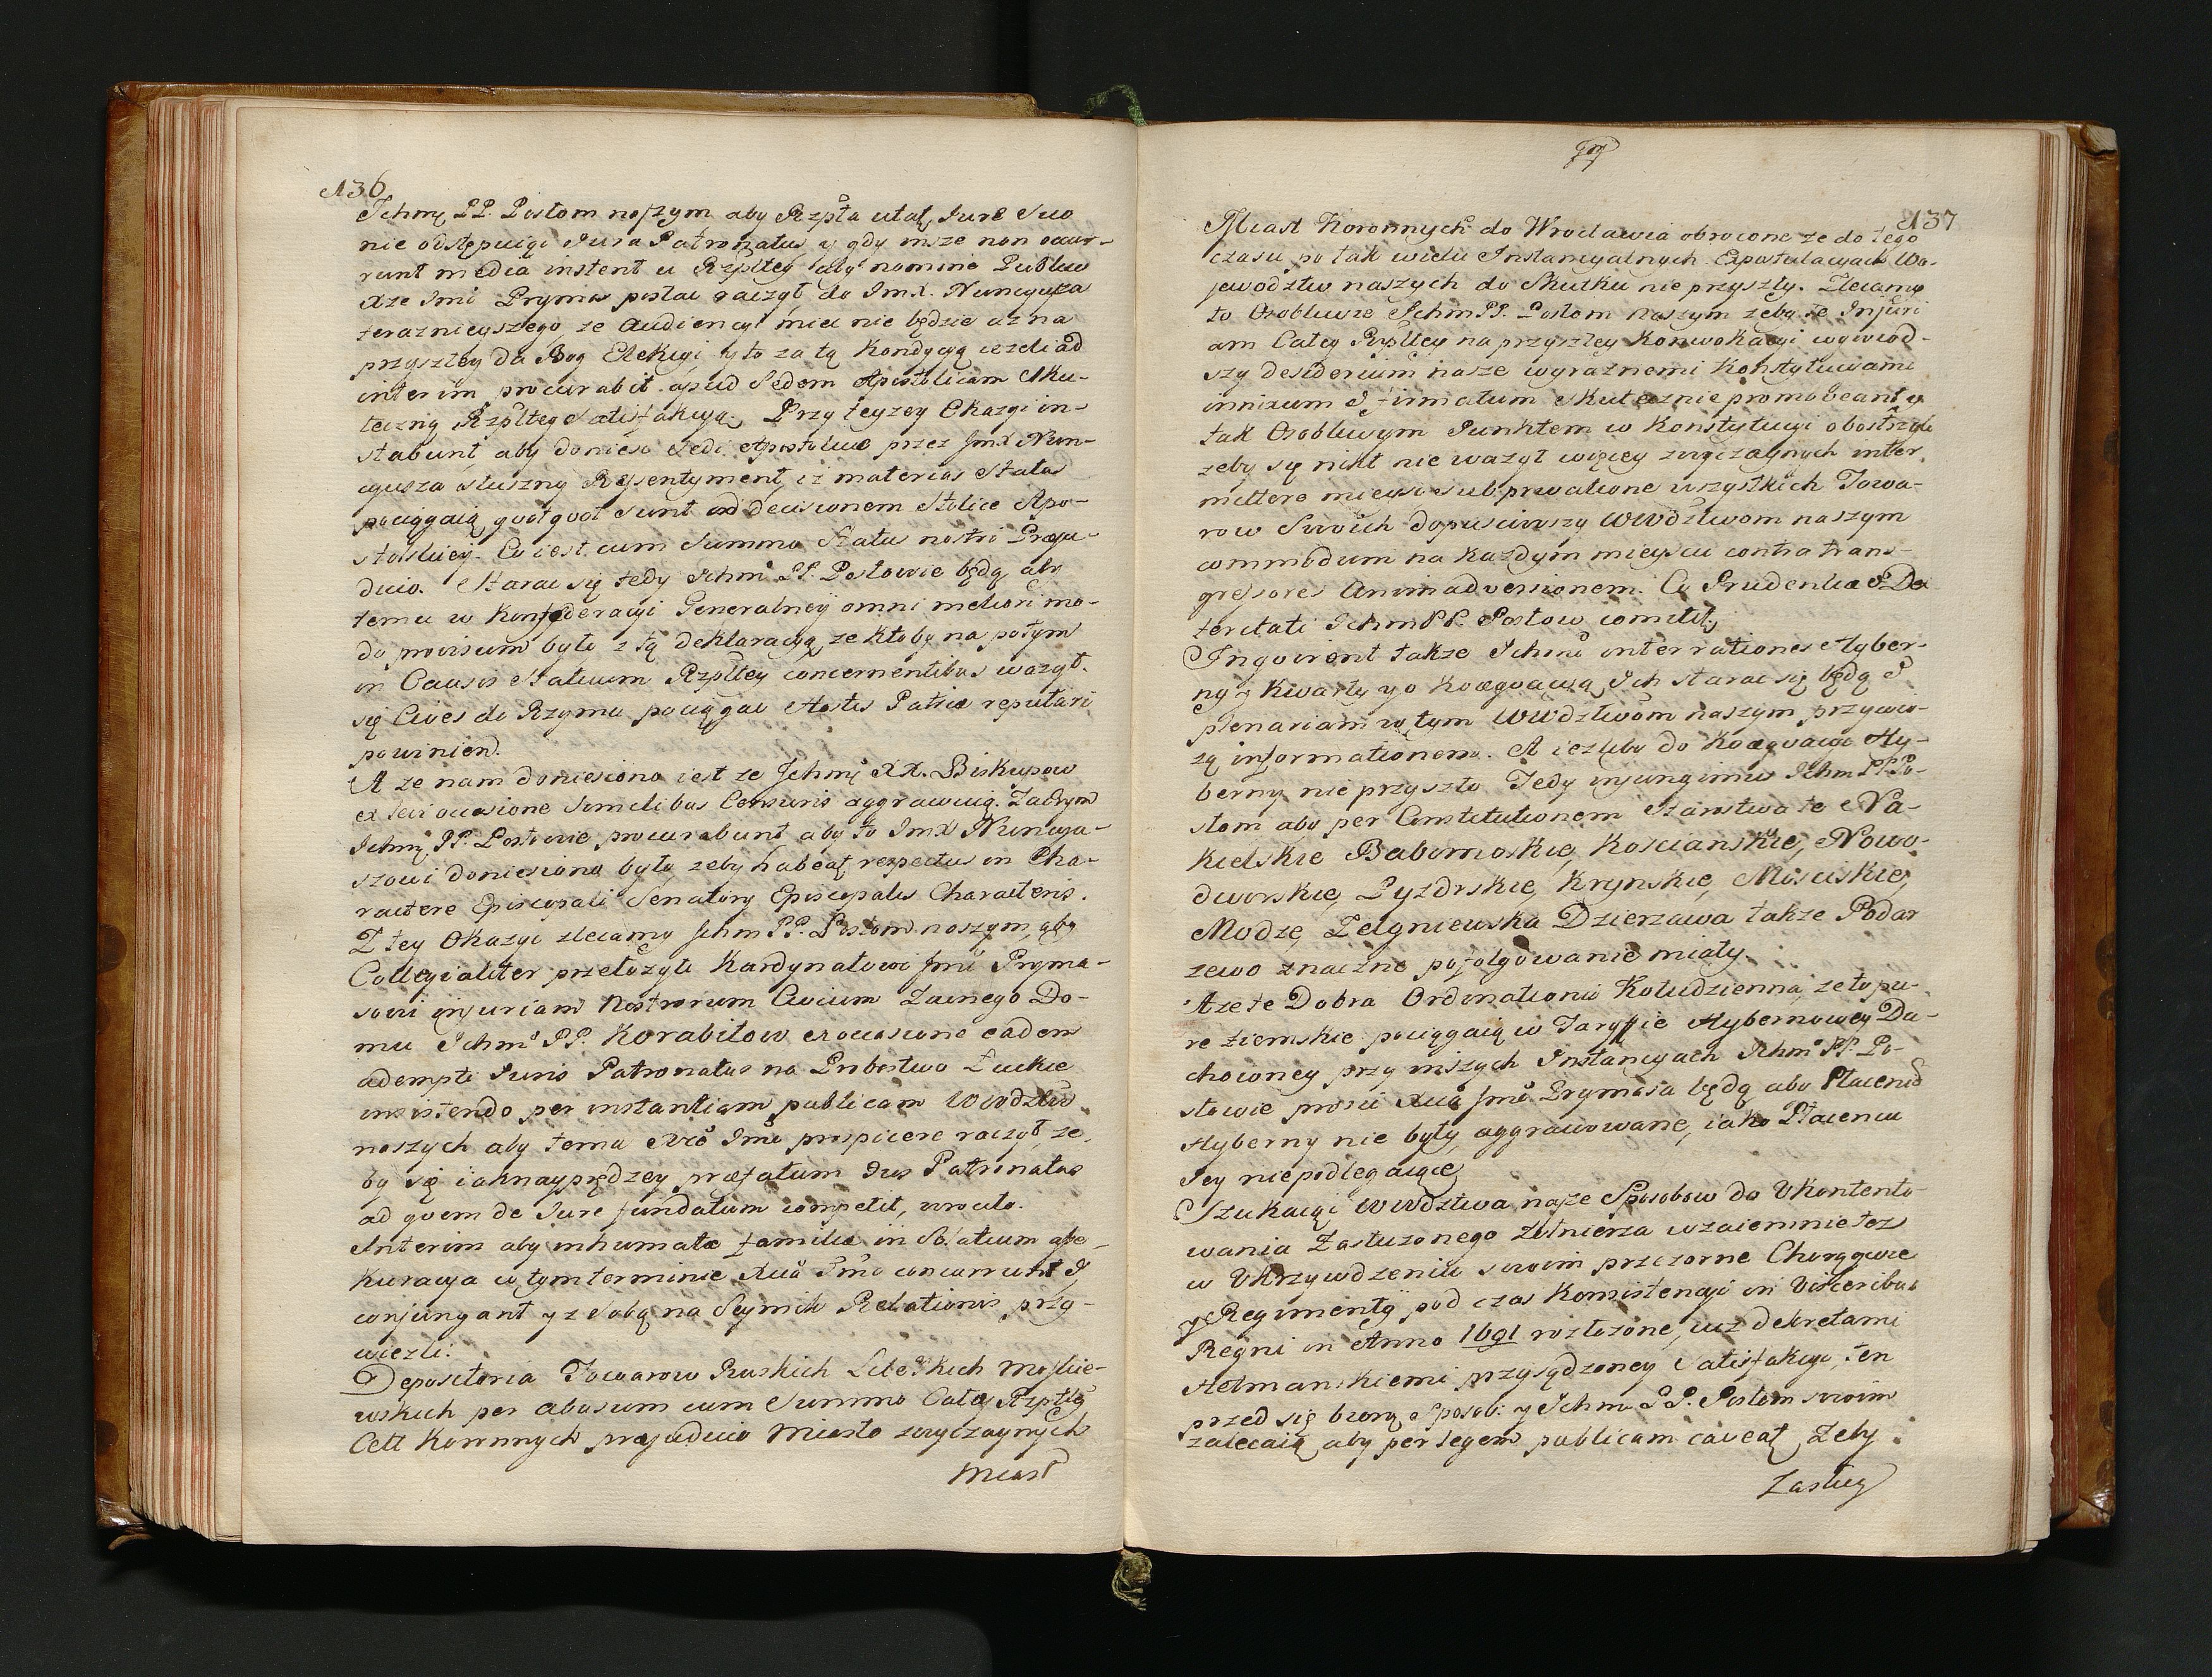 136
Ichmę PP. Posłom naszym aby Rzpta utał Jure Suo
nie odstępuiąc Jura Patronatus, y gdy insze non occur-
runt media instent u Rzpltey aby nomine Publico
Xze Jmć Prymas posłac raczył do Jmx. Nuncyusza
teraznieyszego ze Audiencyi miec nie będzie az na
przyszłey da Bog Elekcyi y to za tą Kondycyą iezeli ad
interim procurabit apud Sedem Apostolicam Sku-
teczną Rzpltey Satisfakcyą. Przy teyzey Okazyi in-
stabunt, aby doniesc Sedi Apostolicae przez Jmx Nun-
cyusza słuszny Resentyment, iz materias Status
pociągaią, qvotqvot sunt ad decisionem Stolice Apo-
stolskiey. Co iest cum Summo Status nostri Praeju-
dicio. Starac się tedy Ichmć PP. Posłowie będą aby
temu w Konfederacyi Generalney omni meliori mo-
do provisum było z tą deklaracyą, ze ktoby na potym
in Causis Statuum Rzpltey concernentibus wazył
się Cives do Rzymu pociągac Hostis Patriae reputari
powinien.
A ze nam doniesiono iest ze Ichmć XX. Biskupow
ex levi occasione Similibus Censuris aggrawuią. Zaczym
Ichmę PP. Posłowie procurabunt aby to Jmx Nuncyu-
szowi doniesiono było, zeby habeat respectus in Cha-
ractere Episcopali Senatory Episcopalis Characteris.
Z tey Okazyi zlecamy Ichm PP. Posłom naszym, aby
Collegialiter przełozyli Kardynałowi Jmć Pryma-
sowi injuriam Nostrorum Civium Zacnego Do-
mu Ichmć PP. Korabitow ex occasione eadem
adempti Juris Patronatus na Probostwo Łuckie
insistendo per instantiam publicam Wwdztw
naszych aby temu Xże Jmć prospicere raczył, ze-
by się iaknayprędzey praefatum Jus Patronatus
ad qvem de Jure fundatum competit, wrociło.
Interim aby inhumatae familiae in Solatium asse-
kuracya w tym terminie Xcia Jmci concurrunt &
conjungant y z sobą na Seymik Relationis przy-
wiezli.
Depositoria Towarow Ruskich Litewskich Moskie-
wskich per abusum cum Summo Całey Rzpltey
Cell Koronnych praejudicio Miasto zwyczaynych
Miast
137
Miast Koronnych do Wrocławia obrocone ze do tego
czasu po tak wielu Instancyalnych Expostulacyach Wo-
jewodztw naszych do Skutku nie przyszły. Zlecamy
to Osobliwie Ichm PP. Posłom naszym zeby te Injuri-
am Całey Rzpltey na przyszłey Konwokacyi wywiod-
szy desiderium nasze wyraznemi Konstytucyami
innixum & firmatum skutecznie promoveant y
tak Osobliwym Punktem w Konstytucyi obostrzyli
zeby się nikt nie wazył więcey zwyczaynych inter-
mittere mieysc sub privatione wszystkich Towa-
row Swoich dopusciwszy Wwdztwom naszym
commodum na kazdym mieyscu contra trans-
gressores Animadversionem. Co Prudentiae & Dex
teritati Ichm PP. Posłow comittit.
Inqvirent takze Ichmć inter rationes Hyber-
ny y Kwarty y o Koaeqvacyą Ich starac się będą &
plenariam w tym Wwdztwom naszym przywio-
zą informationem. A iezliby do Koaeqvacyi Hy-
berny nie przyszło Tedy injungimus Ichm PP. Po-
słom aby per Constitutionem Starostwa te Na-
kielskie Babimoskie, Koscianskie, Nowo-
dworskie, Pyzdrskie, Krynskie, Mosciskie,
Modze, Zelgniewska Dzierzawa takze Podar
zewo znaczne pofolgowanie miały.
A ze te Dobra Ordinationis Kołudzienna, ze to pu-
re ziemskie pociągaią w Taryffie Hybernowey Du-
chowney przy inszych Instancyach Ichmć PP. Po-
słowie prosic Xcia Jmć Prymasa będą aby Płacenie
Hyberny nie były aggrawowane, iako Płaceniu
Jey niepodlegaiące,
Szukaiąc Wwdztwa nasze Sposobow do Ukontento-
wania Zasłuzonego Zołnierza wzaiemnie tez
w Ukrzywdzeniu swoim przezorne Chorągwie
y Regimenty pod czas Konsistencyi in Visceribus
Regni in Anno 1691 rozłozone, iuz dekretami
Hetmanskiemi przysądzoney Satisfakcyi, ten
przed się biorą Sposob: y Ichm PP. Posłom swoim
zalecaią, aby per legem publicam caveat, Zeby
Zasług